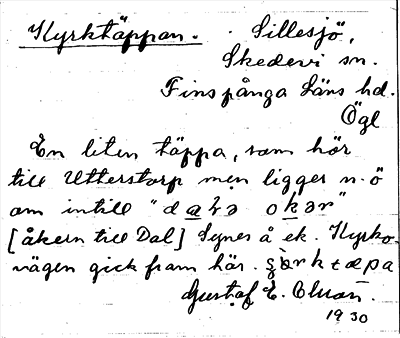 Kyrktäppan. Sillesjö,
Skedevi sn.
Finspånga Läns hd.
Ögl
En liten täppa, som hör
till Utterstorp men ligger n. ö
om intill "da
[åkern till Dal] Synes å ek. Kyrko-
vägen gick fram här.
Gustaf E.
1930